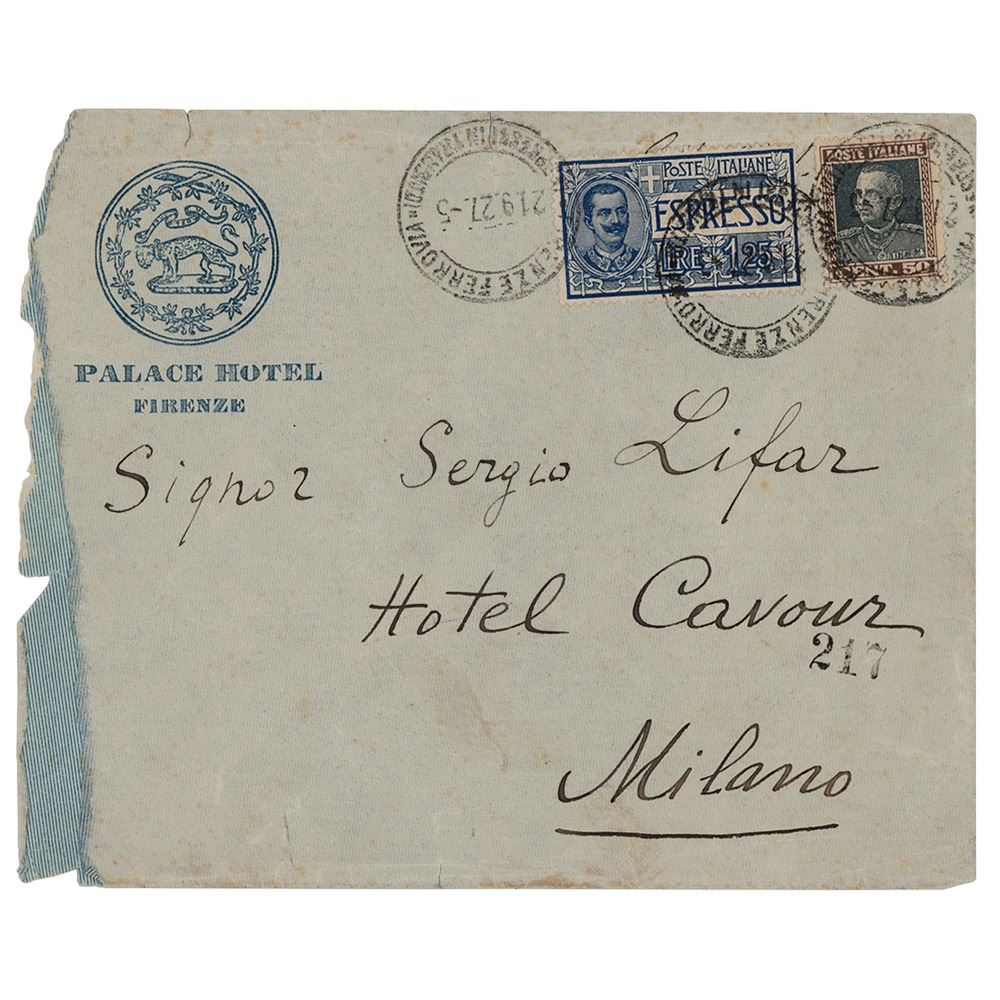 POSTE ITALIANE
ESPRESSO
LIRE 1,25
POSTE ITALIANE
CENT. 50
21.9.27.-5
FIRENZE FERROVIA
FIRENZE FERROVIA
PALACE HOTEL
FIRENZE
Signor Sergio Lifar
Hotel Cavour
217
Milano